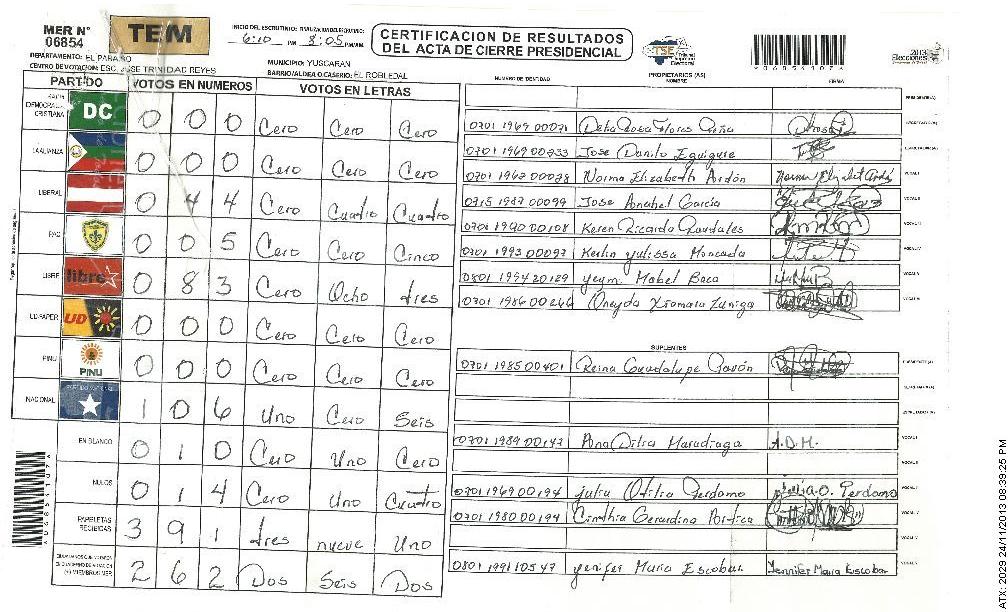 MER N° 06854
TEM
INICIO DEL ESCRUTINIO: 6:10 PM 8:05 PM/AM
CERTIFICACION DE RESULTADOS
DEL ACTA DE CIERRE PRESIDENCIAL
TSE Tribunal Supremo Electoral
A068541076
Elecciones 2013
DEPARTAMENTO: EL PARAISO
MUNICIPIO: YUSCARAN
CENTRO DE VOTACION: ESC. JOSE TRINIDAD REYES
BARRIO/ALDEA O CASERIO: EL ROBLEDAL
PARTIDO VOTOS EN NUMEROS VOTOS EN LETRAS
DEMOCRACIA CRISTIANA DC 0 0 0 Cero Cero Cero
LA ALIANZA 0 0 0 Cero Cero Cero
LIBERAL 0 4 4 Cero Cuatro Cuatro
PAC 0 0 5 Cero Cero Cinco
LIBRE libre 0 8 3 Cero Ocho tres
UD-FAPER UD 0 0 0 Cero Cero Cero
PINU PINU 0 0 0 Cero Cero Cero
NACIONAL 1 0 6 Uno Cero Seis
EN BLANCO 0 1 0 Cero Uno Cero
NULOS 0 1 4 Cero Uno Cuatro
PAPELETAS RECIBIDAS 3 9 1 tres nueve Uno
(+) MIEMBROS MER 2 6 2 Dos Seis Dos
NUMERO DE IDENTIDAD PROPIETARIOS (AS) NOMBRE FIRMA
PRESIDENTE(A)
0701 1969 00071 SECRETARIO(A)
0701 1969 00233 Jose Danilo Eguigure ESCRUTADOR(A)
0701 1962 00028 Norma Elizabeth VOCAL I
0715 1987 00099 Jose Anabel Garcia VOCAL II
0701 1990 00108 Keren Ricarda VOCAL III
0701 1993 00097 Kerlin yulissa Moncada VOCAL IV
0801 1994 20129 Mabel Baca VOCAL V
0701 1986 00266 Oneyda Xiomara Zuniga VOCAL VI
SUPLENTES
0701 1985 00401 Reina Guadalupe PRESIDENTE(A)
SECRETARIO(A)
ESCRUTADOR(A)
0701 1989 00147 Ana Dilia Maradiaga A.D.M. VOCAL I
VOCAL II
0701 1969 00194 julia Otilia Perdomo julia O. Perdomo VOCAL III
0701 1980 00194 Cinthia Gerardina VOCAL IV
VOCAL V
0801 1991 10547 yenifer Maria Escobar Jennifer Maria Escobar
A068541076
ATX: 2029 24/11/2013 08:39:25 PM